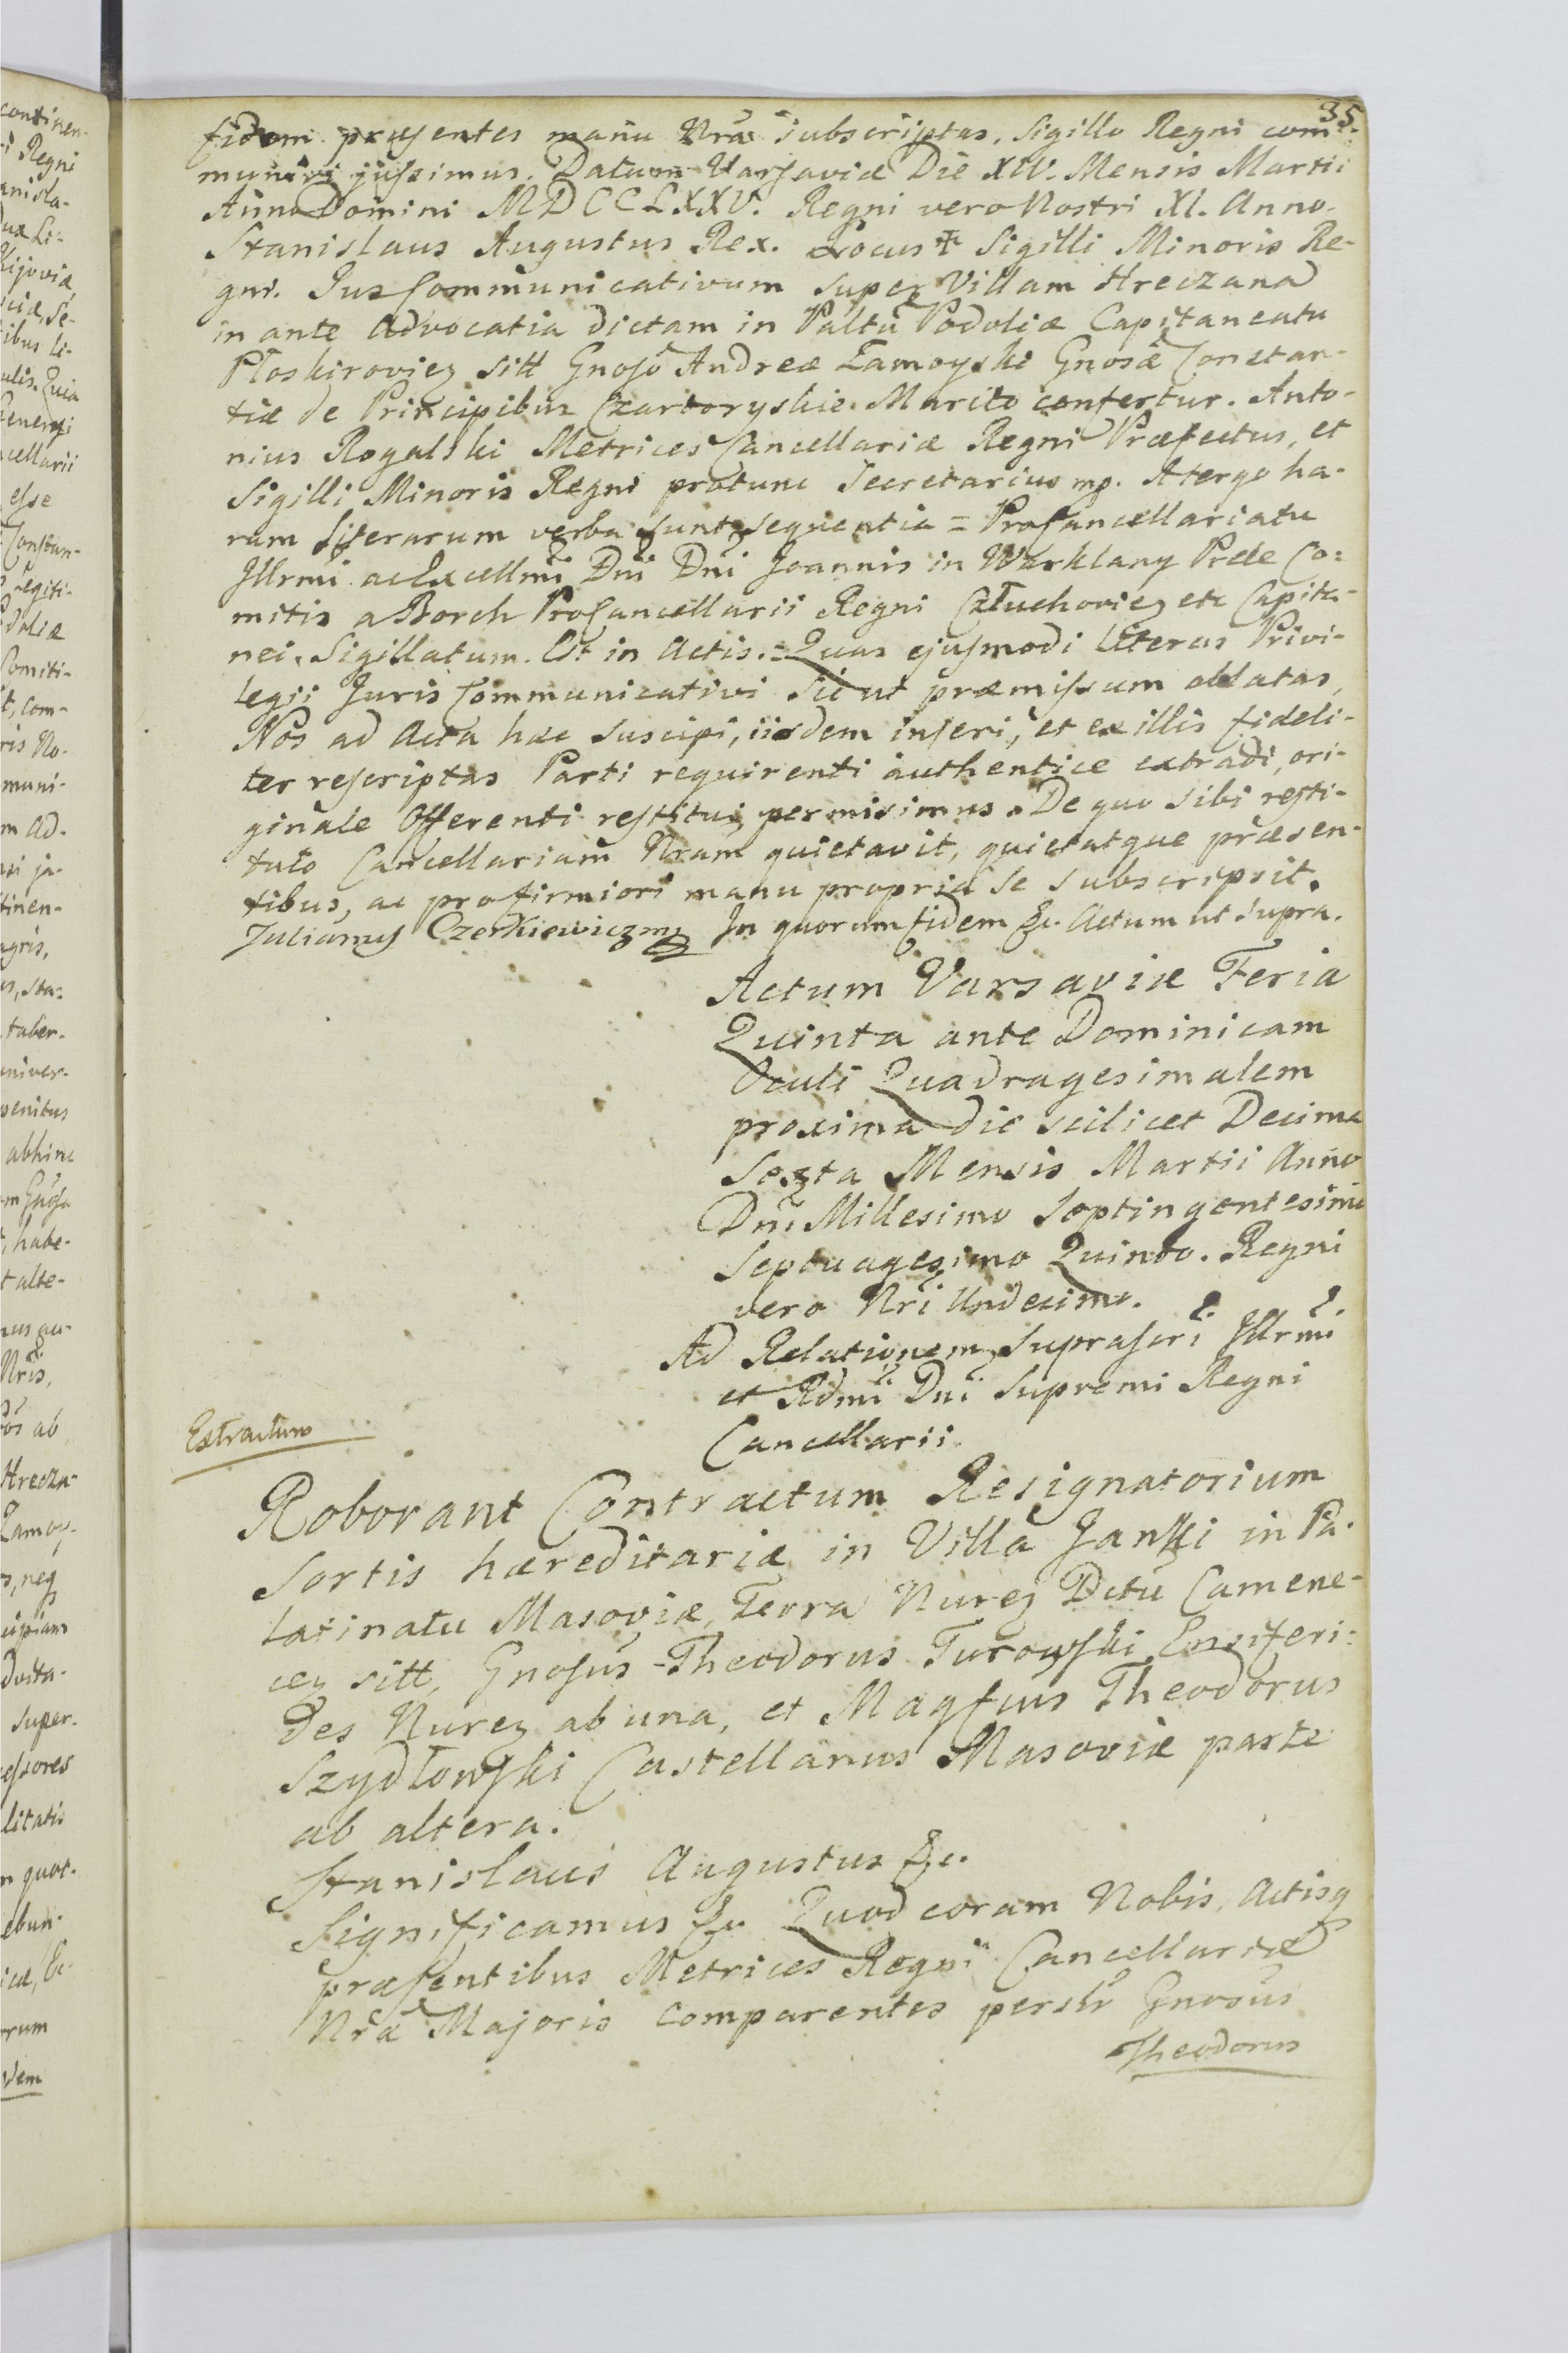 35
fidem præsentes manu Nra subscriptas, Sigillo Regni com-
muniri jussimus. Datum Varsaviæ Die XIV. Mensis Martii
Anno Domini MDCCLXXV. Regni vero Nostri XI. Anno.
Stanislaus Augustus Rex. Locus ✝ Sigilli Minoris Re-
gni. Jus Communicativum super Villam Hreczana
in ante Advocatia dictam in Paltu Podoliæ Capitaneatu
Płoskiroviez sitt Gnoso Andreæ Zamoyski Gnosæ Constan-
tiæ de Principibus Czartoryskie Marito confertur. Anto-
nius Rogalski Metrices Cancellariæ Regni Præfectus, et
Sigilli Minoris Regni protunc Secretarius mp. Atergo ha-
rum Literarum verba sunt sequentia = Procancellariatu
Illrmi ac Excellmi Dni Dni Joannis in Warklany Prele Co=
mitis a Borch Procancellarii Regni Człuchoviez etc Capita-
nei, Sigillatum. Est in Actis. = Quas ejusmodi Literas Privi-
legii Juris Communicativi sic ut præmissum oblatas,
Nos ad Acta hæc suscipi, iisdem inseri, et ex illis fideli-
ter rescriptas Parti requirenti authentice extradi, ori-
ginale Offerenti restitui permisimus. De quo sibi resti-
tuto Cancellariam Nram quietavit, quietatque præsen-
tibus, ac pro firmiori manu propria se subscripsit.
Julianus Czerkiewicz mp In quorum fidem &c. Actum ut supra.
Actum Varsaviæ Feria
Quinta ante Dominicam
Oculi Quadragesimalem
proxima die scilicet Decima
Sexta Mensis Martii Anno
Dni Millesimo Septingentesimo
Septuagesimo Quinto. Regni
vero Nri Undecimo.
Ad Relationem suprascri Illrmi
et Rdmi Dni Supremi Regni
Cancellarii.
Extractum
Roborant Contractum Resignatorium
Sortis hæreditariæ in Villa Janki in Pa-
latinatu Masoviæ, Terra Nurez Dctu Camene-
cez sitt, Gnosus Theodorus Turowski Ensiferi-
des Nurez ab una, et Magfcus Theodorus
Szydłowski Castellanus Masoviæ parte
ab altera.
Stanislaus Augustus &c.
Significamus &c. Quod coram Nobis, Actisq
præsentibus Metrices Regni Cancellariæ
Nræ Majoris comparentes persłr Gnosus
Theodorus